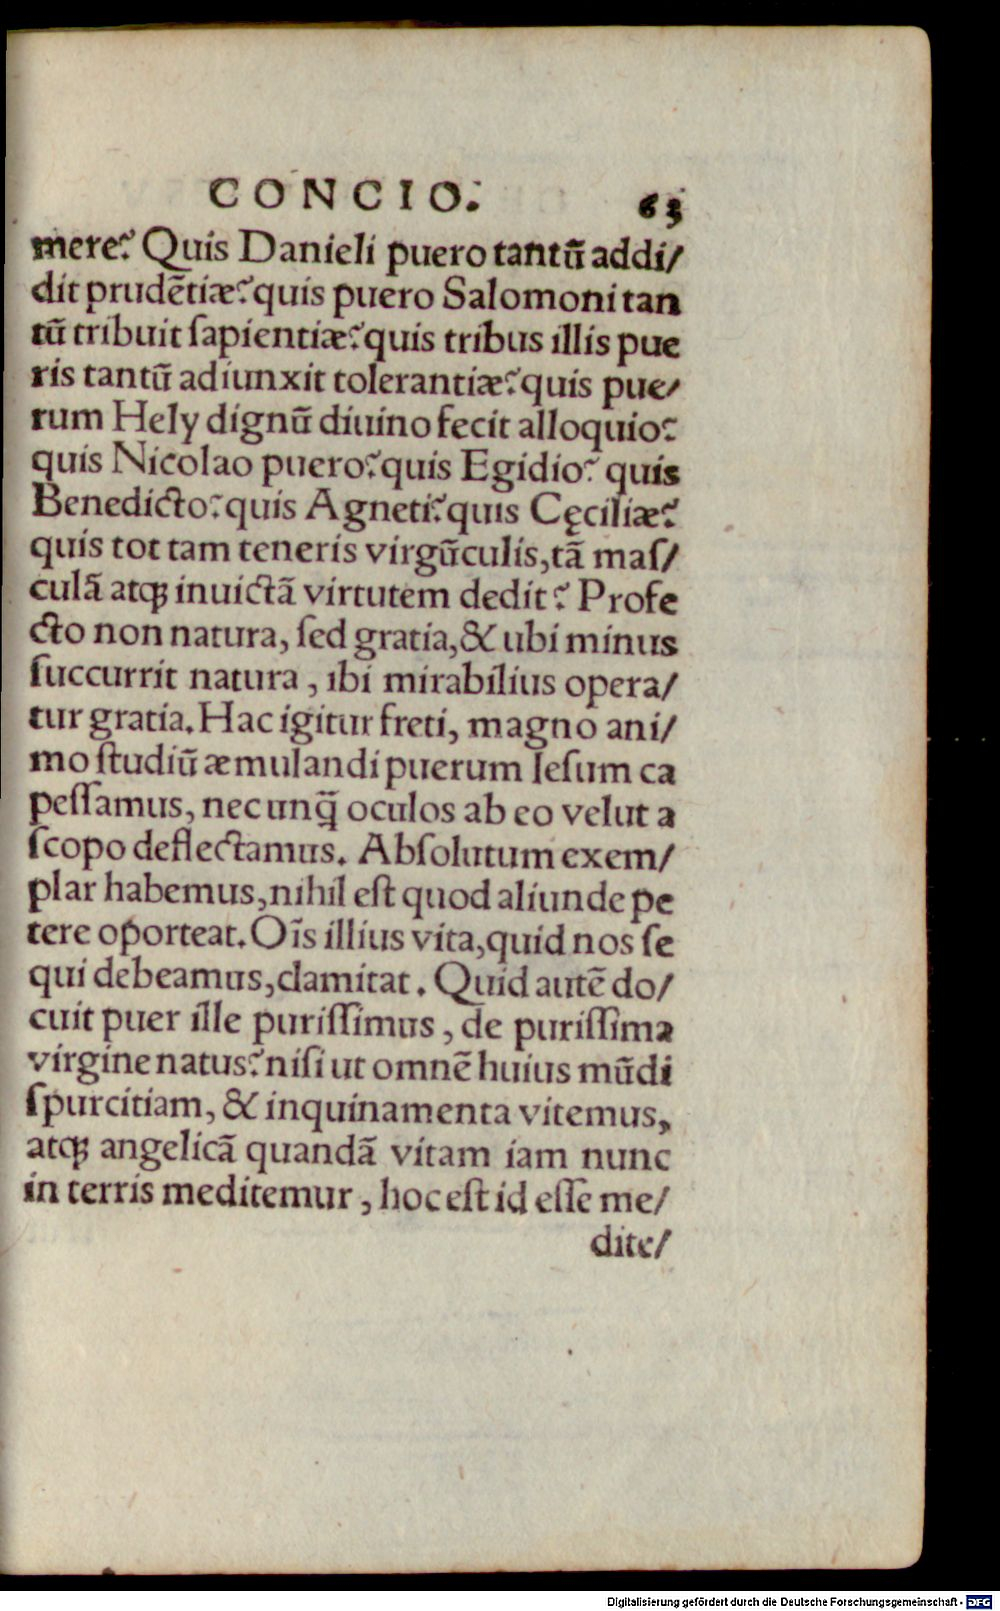 CONCIO. 63
mere? Quis Danieli puero tantũ addi/
dit prudẽtiæ? quis puero Salomoni tan
tũ tribuit ſapientiæ? quis tribus illis pue
ris tantũ adiunxit tolerantiæ? quis pue/
rum Hely dignũ diuino fecit alloquio?
quis Nicolao puero? quis Egidio? quis
Benedicto? quis Agneti? quis Cęciliæ?
quis tot tam teneris virgũculis, tã maſ/
culã atqꝫ inuictã virtutem dedit? Profe
cto non natura, ſed gratia, & ubi minus
ſuccurrit natura, ibi mirabilius opera/
tur gratia. Hac igitur freti, magno ani/
mo ſtudiũ æmulandi puerum Ieſum ca
peſſamus, nec unq̃ oculos ab eo velut a
ſcopo deflectamus. Abſolutum exem/
plar habemus, nihil eſt quod aliunde pe
tere oporteat. Oĩs illius vita, quid nos ſe
qui debeamus, clamitat. Quid autẽ do/
cuit puer ille puriſſimus, de puriſſima
virgine natus? niſi ut omnẽ huius mũdi
ſpurcitiam, & inquinamenta vitemus,
atqꝫ angelicã quandã vitam iam nunc
in terris meditemur, hoc eſt id eſſe me/
dite/
Digitalisierung gefördert durch die Deutsche Forschungsgemeinschaft - DFG